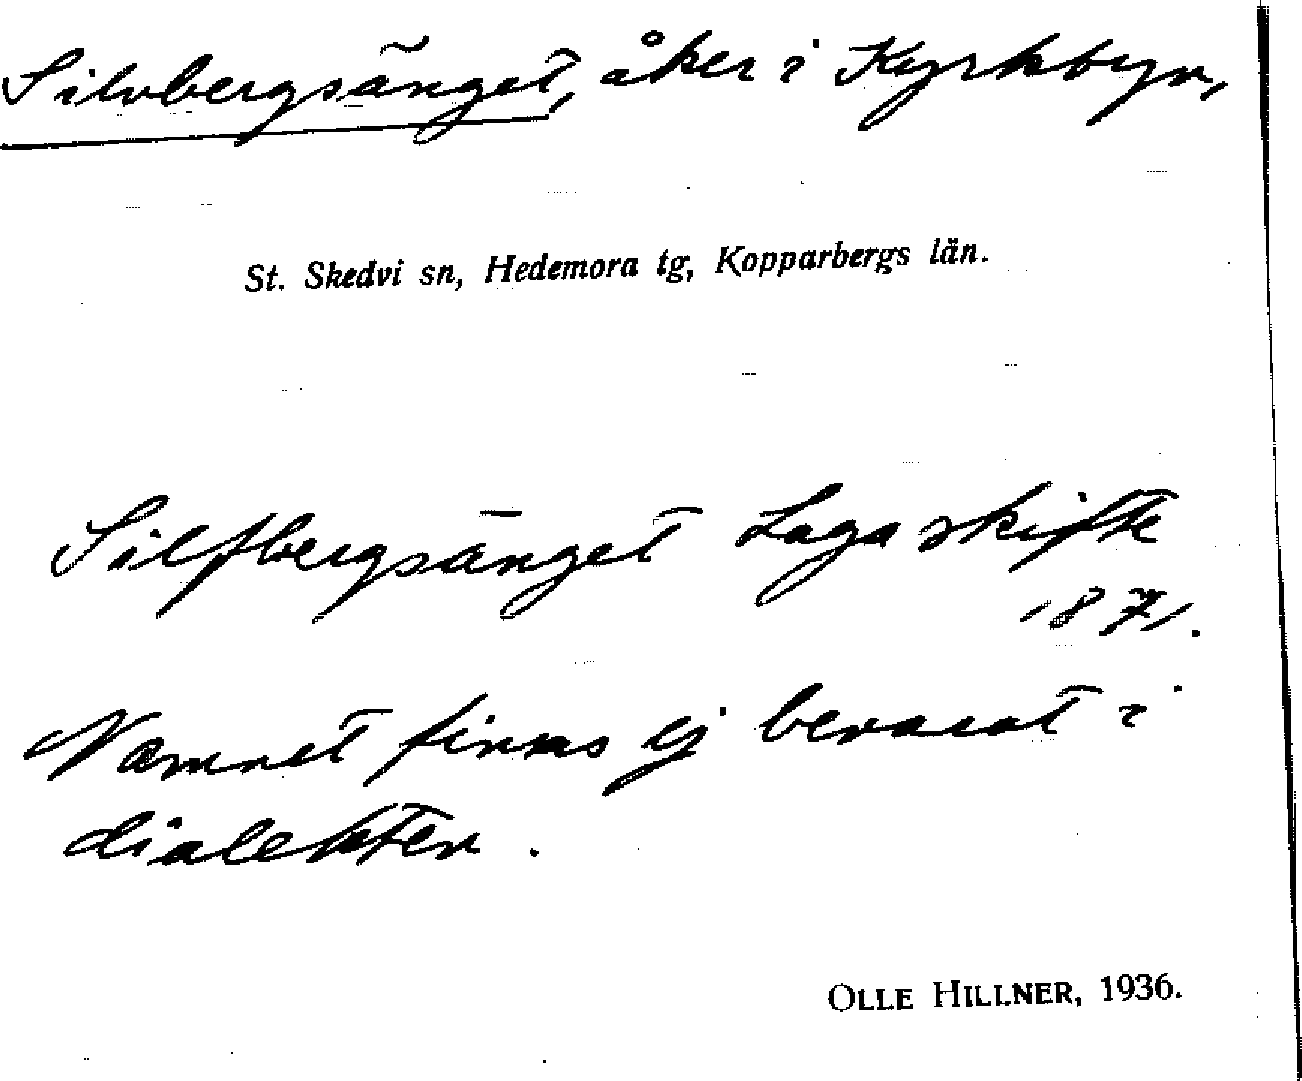 Silvbergsänget, åker i Kyrkbyn,
St. Skedvi sn, Hedemora tg, Kopparbergs län.
Silfbergsänget Laga skifte
1871.
Namnet finns ej bevarat i
dialekten.
OLLE HILLNER, 1936.